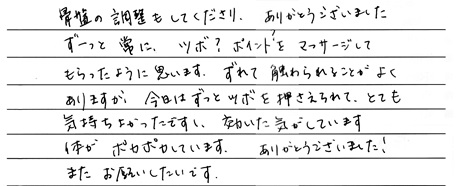 骨盤の調整もしてくださり、ありがとうございました
ずーっと常に、ツボ？ポイント？をマッサージして
もらったように思います。ずれて触わられることがよく
ありますが、今日はずっとツボを押さえられて、とても
気持ちよかったですし、効いた気がしています
体がポカポカしています。ありがとうございました！
またお願いしたいです。